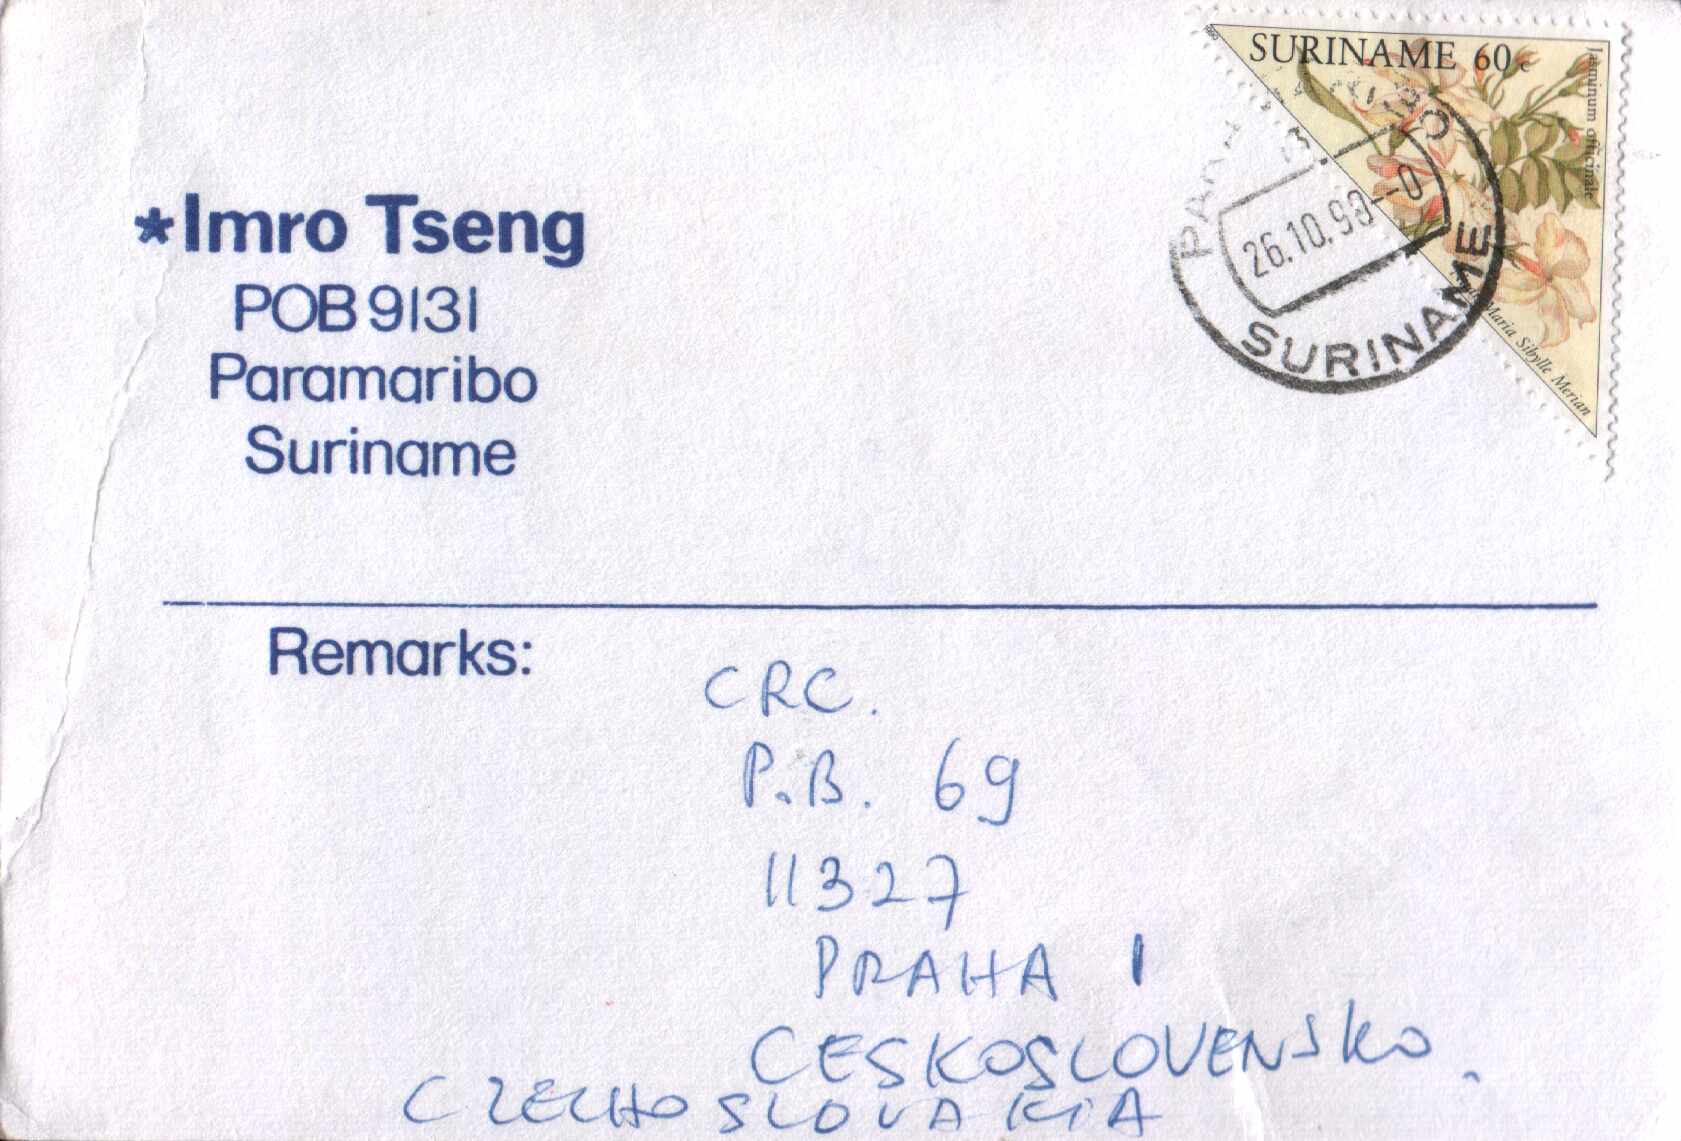 SURINAME 60 c
Jasminum officinale
Maria Sibylle Merian
1990
26.10.90
SURINAME
*Imro Tseng
POB 9131
Paramaribo
Suriname
Remarks:
CRC.
P.B. 69
11327
PRAHA 1
CESKOSLOVENSKO.
CZECHOSLOVAKIA